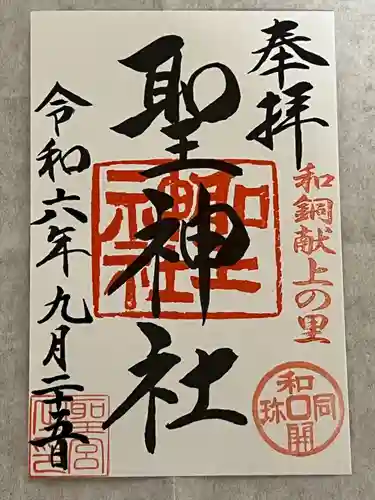 奉拝
和銅献上の里
和同開珎
聖神社
聖神社
令和六年九月二十五日